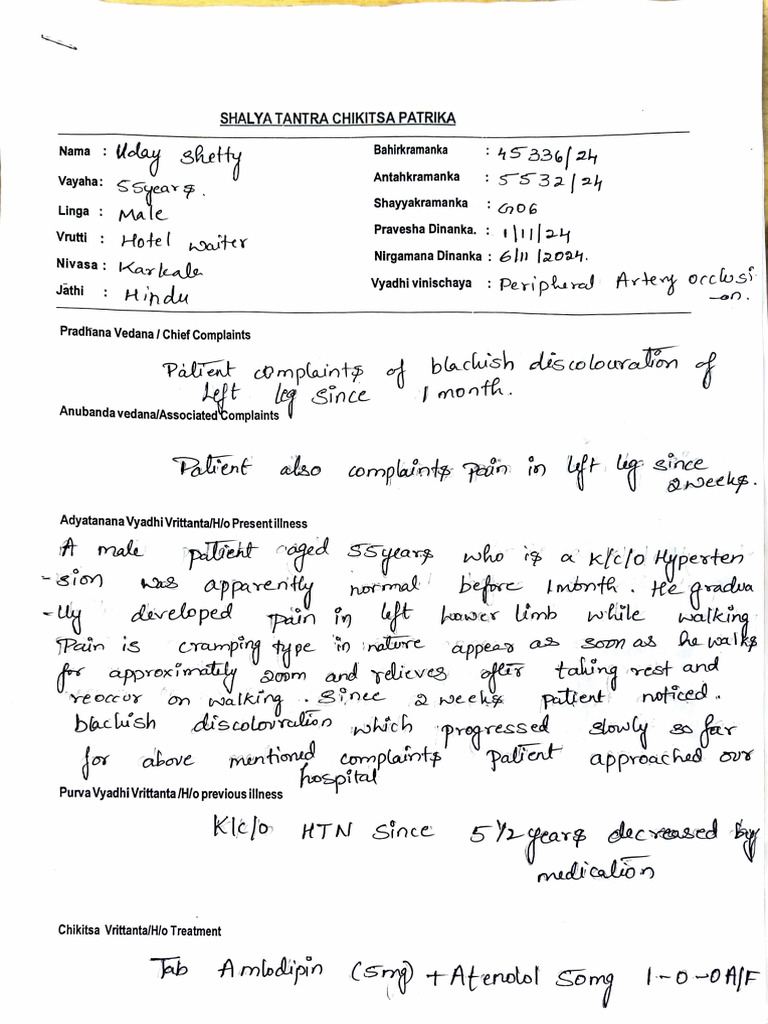 SHALYA TANTRA CHIKITSA PATRIKA
Nama : Uday Shetty
Bahirkramanka : 45336/24
Vayaha: 55years.
Antahkramanka : 5532/24
Linga : Male
Shayyakramanka : G06
Vrutti : Hotel waiter
Pravesha Dinanka. : 1/11/24
Nivasa : Karkala
Nirgamana Dinanka : 6/11/2024.
Jathi : Hindu
Vyadhi vinischaya : Peripheral Artery occlusi
-on.
Pradhana Vedana / Chief Complaints
Patient complaints of blackish discolouration of
left leg since 1 month.
Anubanda vedana/Associated Complaints
Patient also complaints pain in left leg since
2 weeks.
Adyatanana Vyadhi Vrittanta/H/o Present illness
A male patient aged 55years who is a K/c/o Hyperten
-sion was apparently normal before 1month. He gradua
-lly developed pain in left lower limb while walking
Pain is cramping type in nature appear as soon as he walks
for approximately 200m and relieves after taking rest and
reoccur on walking. Since 2 weeks patient noticed.
blackish discolouration which progressed slowly so far
for above mentioned complaints patient approached our
hospital
Purva Vyadhi Vrittanta /H/o previous illness
K/c/o HTN since 5 1/2 years decreased by
medication
Chikitsa Vrittanta/H/o Treatment
Tab Amlodipin (5mg) + Atenolol 50mg 1-0-0 A/F